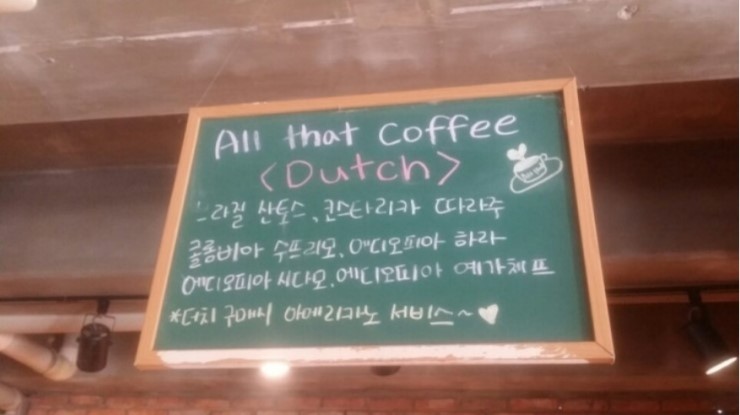 All that coffee
<Dutch>
브라질 산토스, 코스타리카 따라주
콜롬비아 수프리모, 에디오피아 하라
에디오피아 시다모, 에디오피아 예가체프
*더치 구매시 아메리카노 서비스~♥